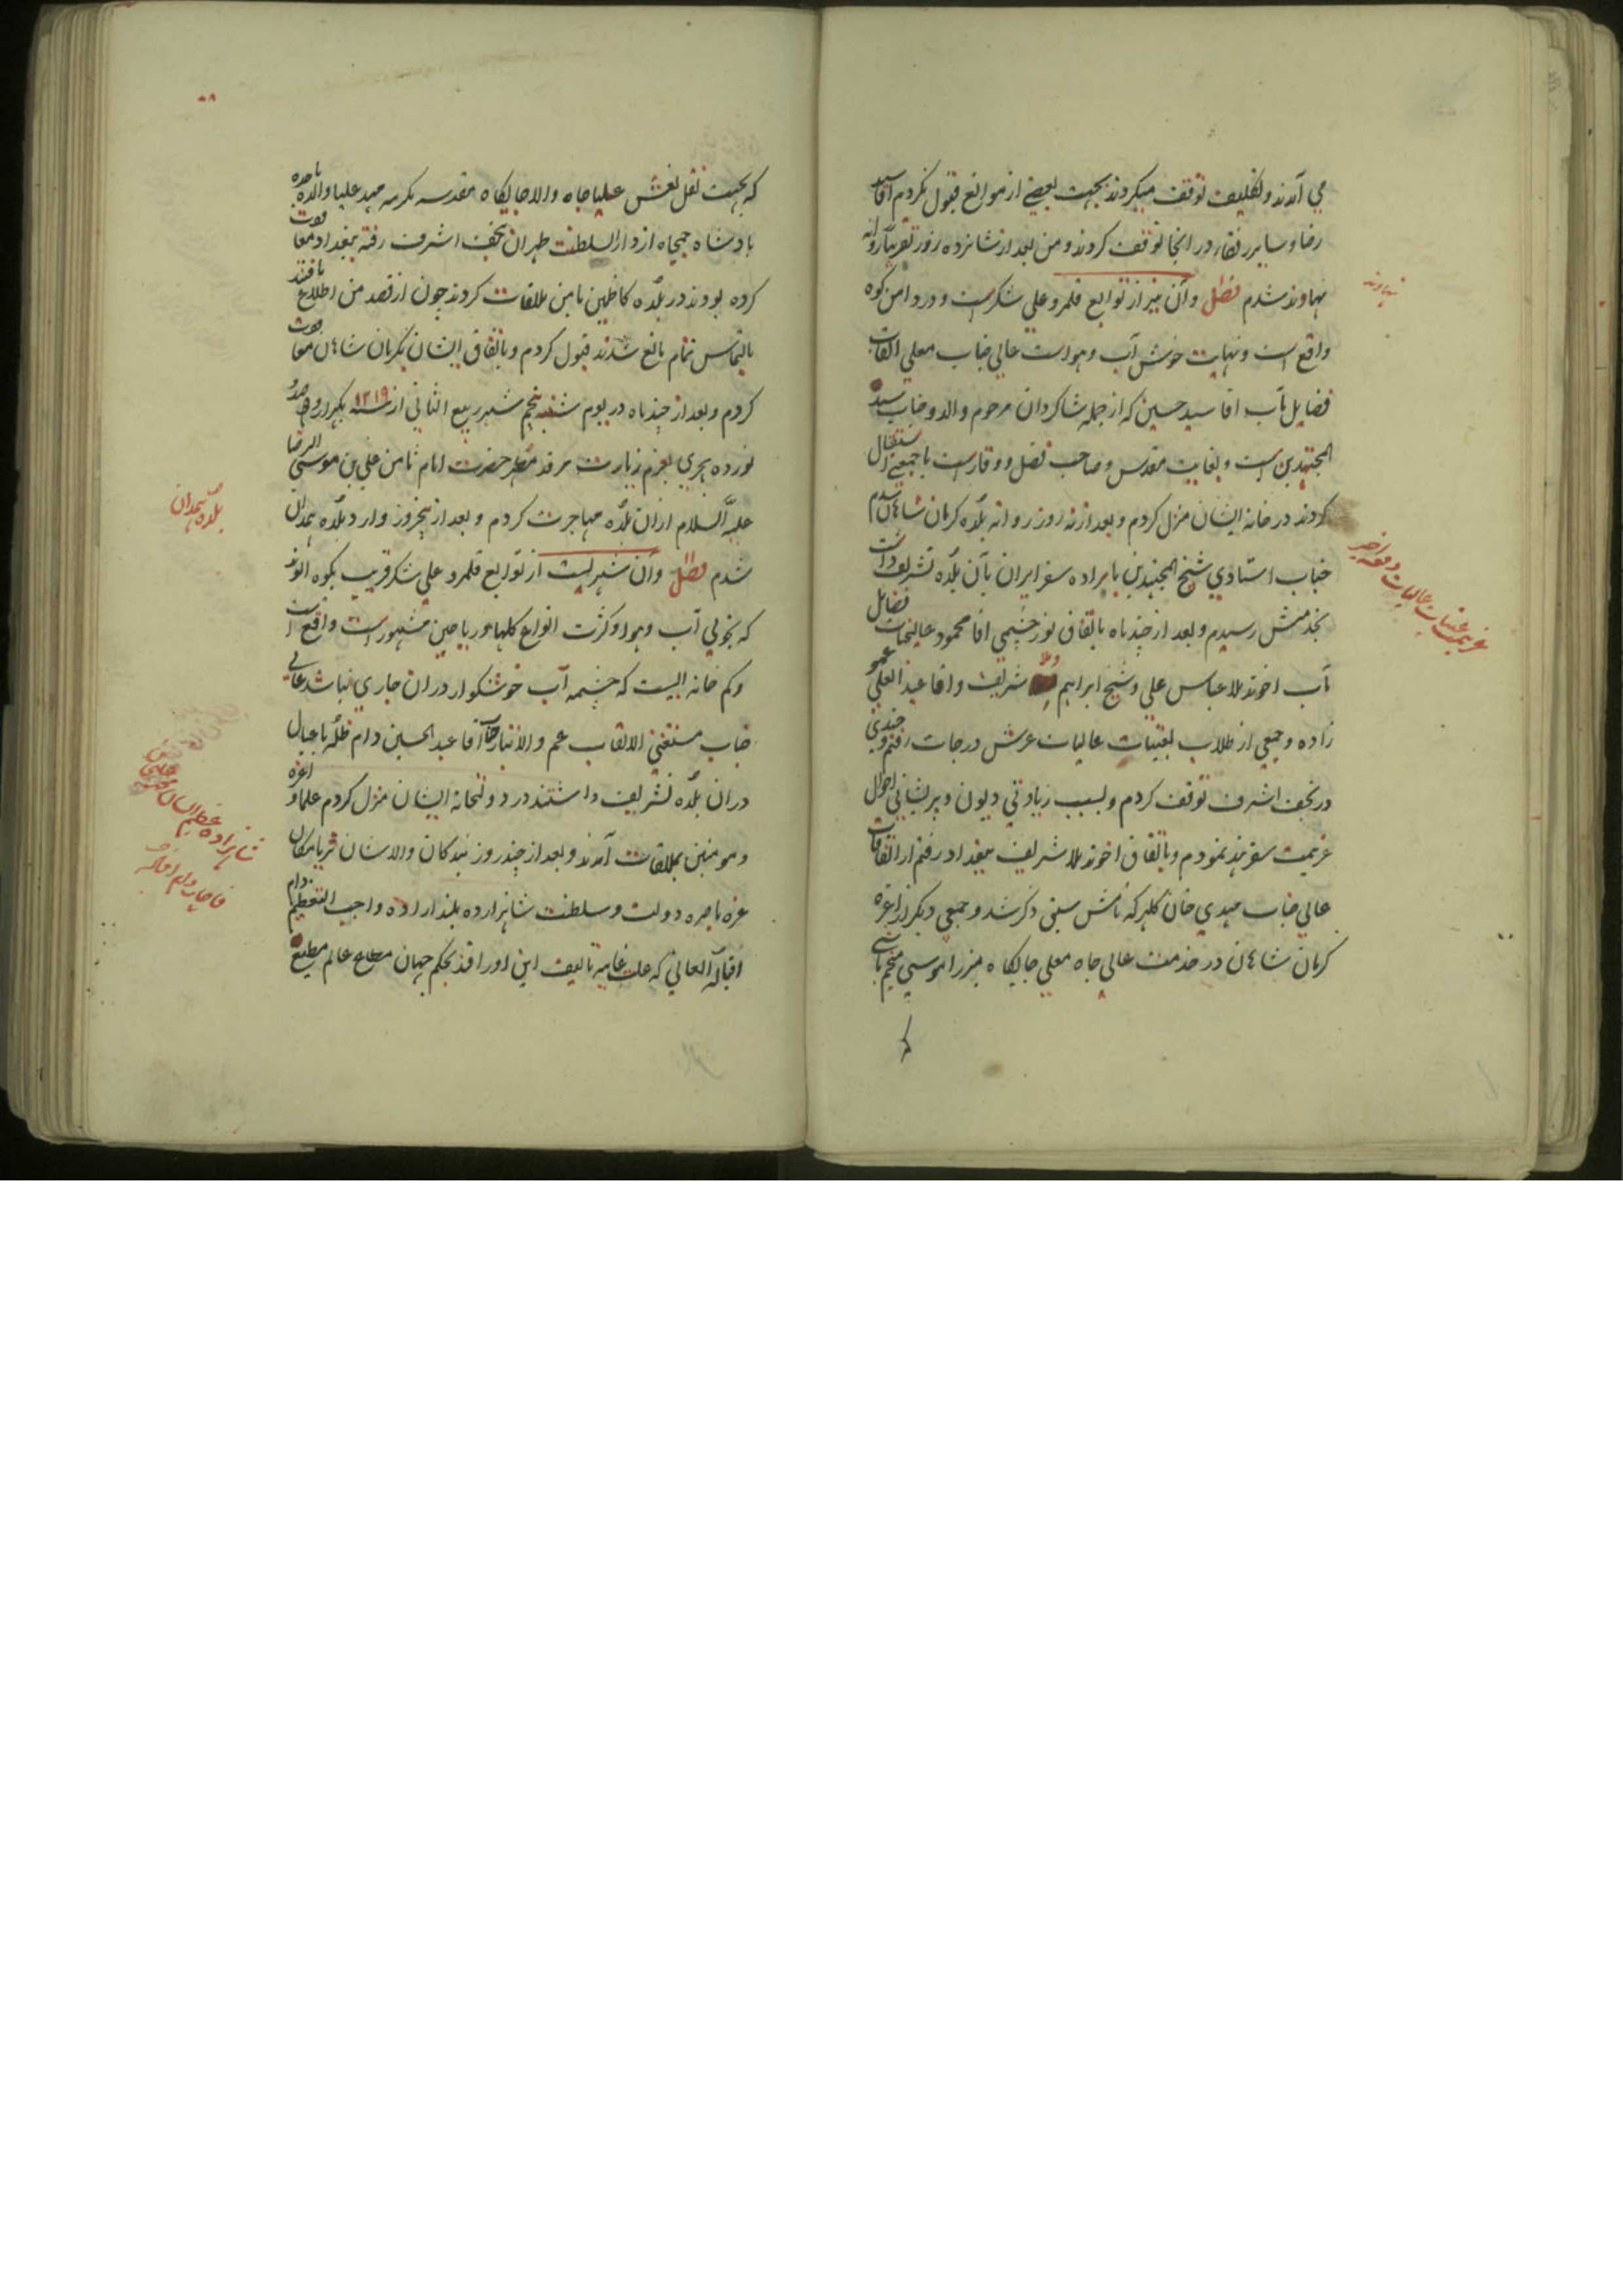 می آمدند و تکلیف توقف میکردند بجهت بعضی از موانع قبول نکردم اقا سید
رضا و سایر رفقاء در انجا توقف کردند و من بعد از شانزده روز تقریباً روانه
نهاوند شدم فصل وآن نیز از توابع قلمرو علی شکرست و در دامن کوه
نهاوند
واقع است و نهایت خوش آب و هواست عالی جناب معلی القاب
فضایل مآب اقا سید حسین که از جمله شاکردان مرحوم والد و جناب سید
المجتهدین است و بغایت مقدس و صاحب فضل و وقارست با جمعی استقبال
کردند در خانه ایشان منزل کردم و بعد از نه روز روانه بلده کرمان شاهان شدم
جناب استادی شیخ المجتهدین باراده سفر ایران بآن بلده تشریف داشت
عزیمت عتبات عالیات دفعه اخیر
بخدمتش رسیدم و بعد از چند ماه باتفاق نور چشمی اقا محمود عالیجنابان فضایل
مآب اخوند ملا عباس علی و شیخ ابراهیم و ملا شریف و اقا عبد العلی عمو
زاده و جمعی از طلاب بعتبات عالیات عرش درجات رفتم و چندی
در نجف اشرف توقف کردم و بسبب زیادتی دیون و پریشانی احوال
عزیمت سفر هند نمودم و باتفاق اخوند ملا شریف ببغداد رفتم از اتفاقات
عالی جناب مهدی خان کلهر که نامش سبق ذکر شد و جمعی دیکر از اعزه
کرمان شاهان در خدمت عالی جاه معلی جایکاه میرزا موسی منجم باشی
که بجهت نقل نعش علیا جاه والا جایکاه مقدسه مکرمه مهد علیا والده ماجده
بادشاه جمجاه از دار السلطنت طهران بنجف اشرف رفته ببغداد معاودت
کرده بودند در بلده کاظمین با من ملاقات کردند چون از قصد من اطلاع یافتند
بالتماس تمام مانع شدند قبول کردم و باتفاق ایشان بکرمان شاهان معاودت
کردم و بعد از چند ماه در یوم شنبه پنجم شهر ربیع الثانی از سنه ۱۲۱۹ یکهزار و دو صد و
نوزده هجری بعزم زیارت مرقد مطهر حضرت امام ثامن علی بن موسی الرضا
علیه السلام ازان بلده مهاجرت کردم و بعد از پنجروز وارد بلده همدان
بلده همدان
شدم فصل وآن شهریست از توابع قلمرو علی شکر قریب بکوه الوند
که بخوبی آب و هوا و کثرت انواع کلها و ریاحین مشهورست واقع است
و کم خانه ایست که چشمه آب خوشکوار دران جاری نباشد عالی
جناب مستغنی الالقاب عم والاتبار جناب آقا عبد الحسین دام ظله با عیال
دران بلده تشریف داشتند در دولتخانه ایشان منزل کردم علما و اعزه
و مومنین بملاقات آمدند و بعد از چند روز بندکان والاشان ثریا مکان
شاهزاده عظیم الشان
غره ناصره دولت و سلطنت شاهزاده بلند اراده واجب التعظیم دام
اقباله العالی که علت غاییه تالیف این اوراقند بحکم جهان مطاع عالم مطیع